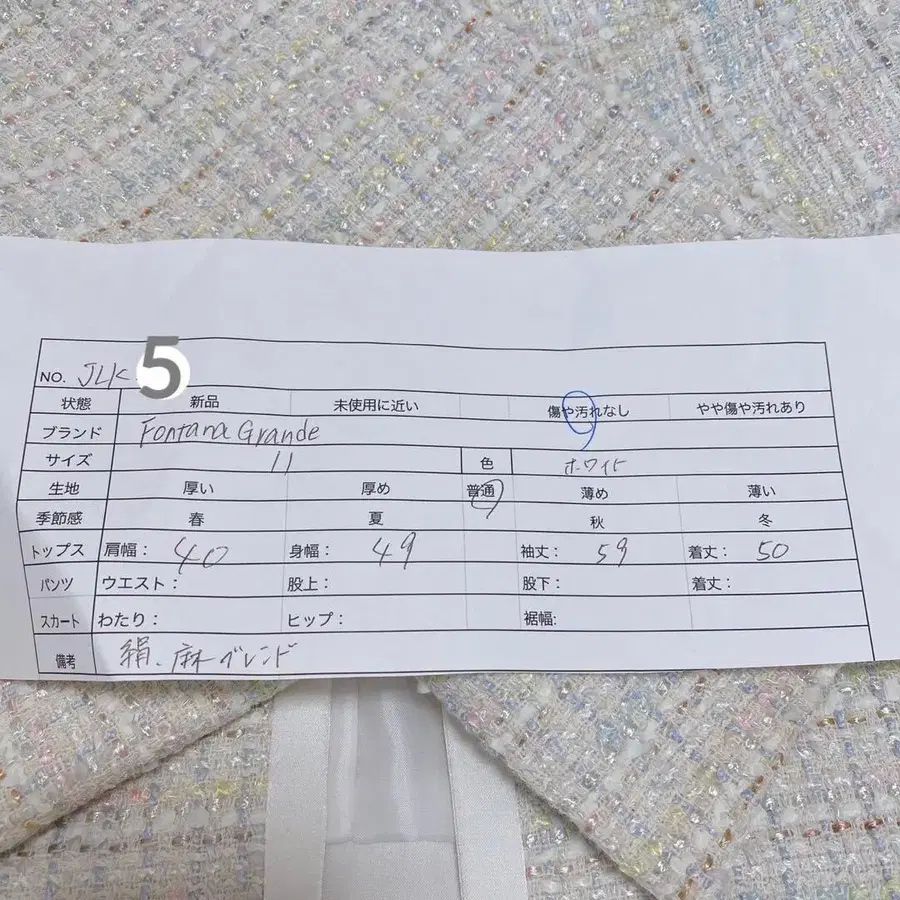 NO. JLK 5
状態 新品 未使用に近い 傷や汚れなし やや傷や汚れあり
ブランド Fontana Grande
サイズ 11 色 ホワイト
生地 厚い 厚め 普通 薄め 薄い
季節感 春 夏 秋 冬
トップス 肩幅： 40 身幅： 49 袖丈： 59 着丈： 50
パンツ ウエスト： 股上： 股下： 着丈：
スカート わたり： ヒップ： 裾幅:
備考 絹、麻ブレンド